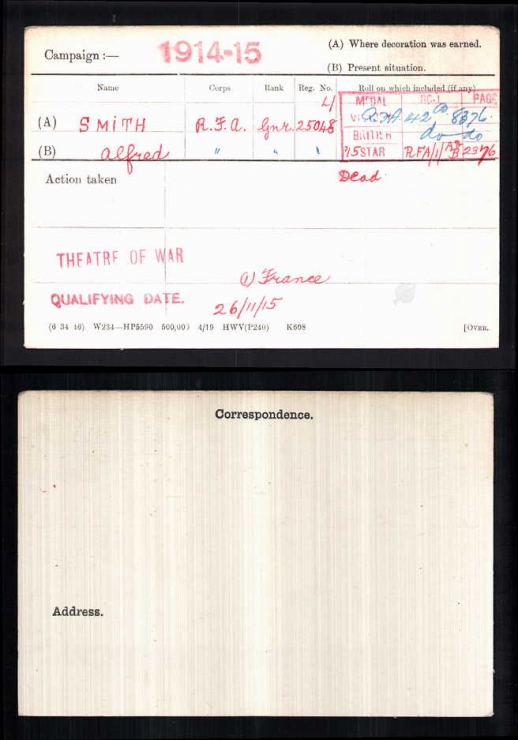 Campaign :— 1914-15
(A) Where decoration was earned.
(B) Present situation.
Name Corps Rank Reg. No. Roll on which included (if any).
MEDAL ROLL PAGE
(A) SMITH R.F.A. Gnr. L/25048 VICTORY R.F.A. 42 B. 8376.
(B) Alfred " " " BRITISH do do
'15 STAR RFA/1/AB 2376
Action taken Dead.
THEATRE OF WAR
(1) France
QUALIFYING DATE. 26/11/15
(6 34 46) W234—HP5590 500,000 4/19 HWV(P240) K608 [OVER.
Correspondence.
Address.